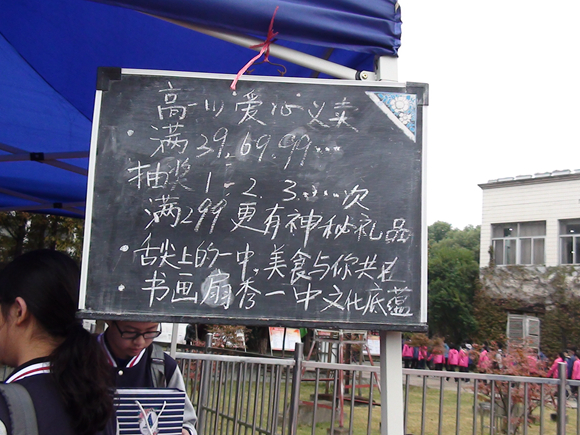 高一(1) 爱心义卖
·满39,69,99……
抽奖1、2、3……次
满299更有神秘礼品
·舌尖上的一中,美食与你共
·书画扇秀一中文化底蕴